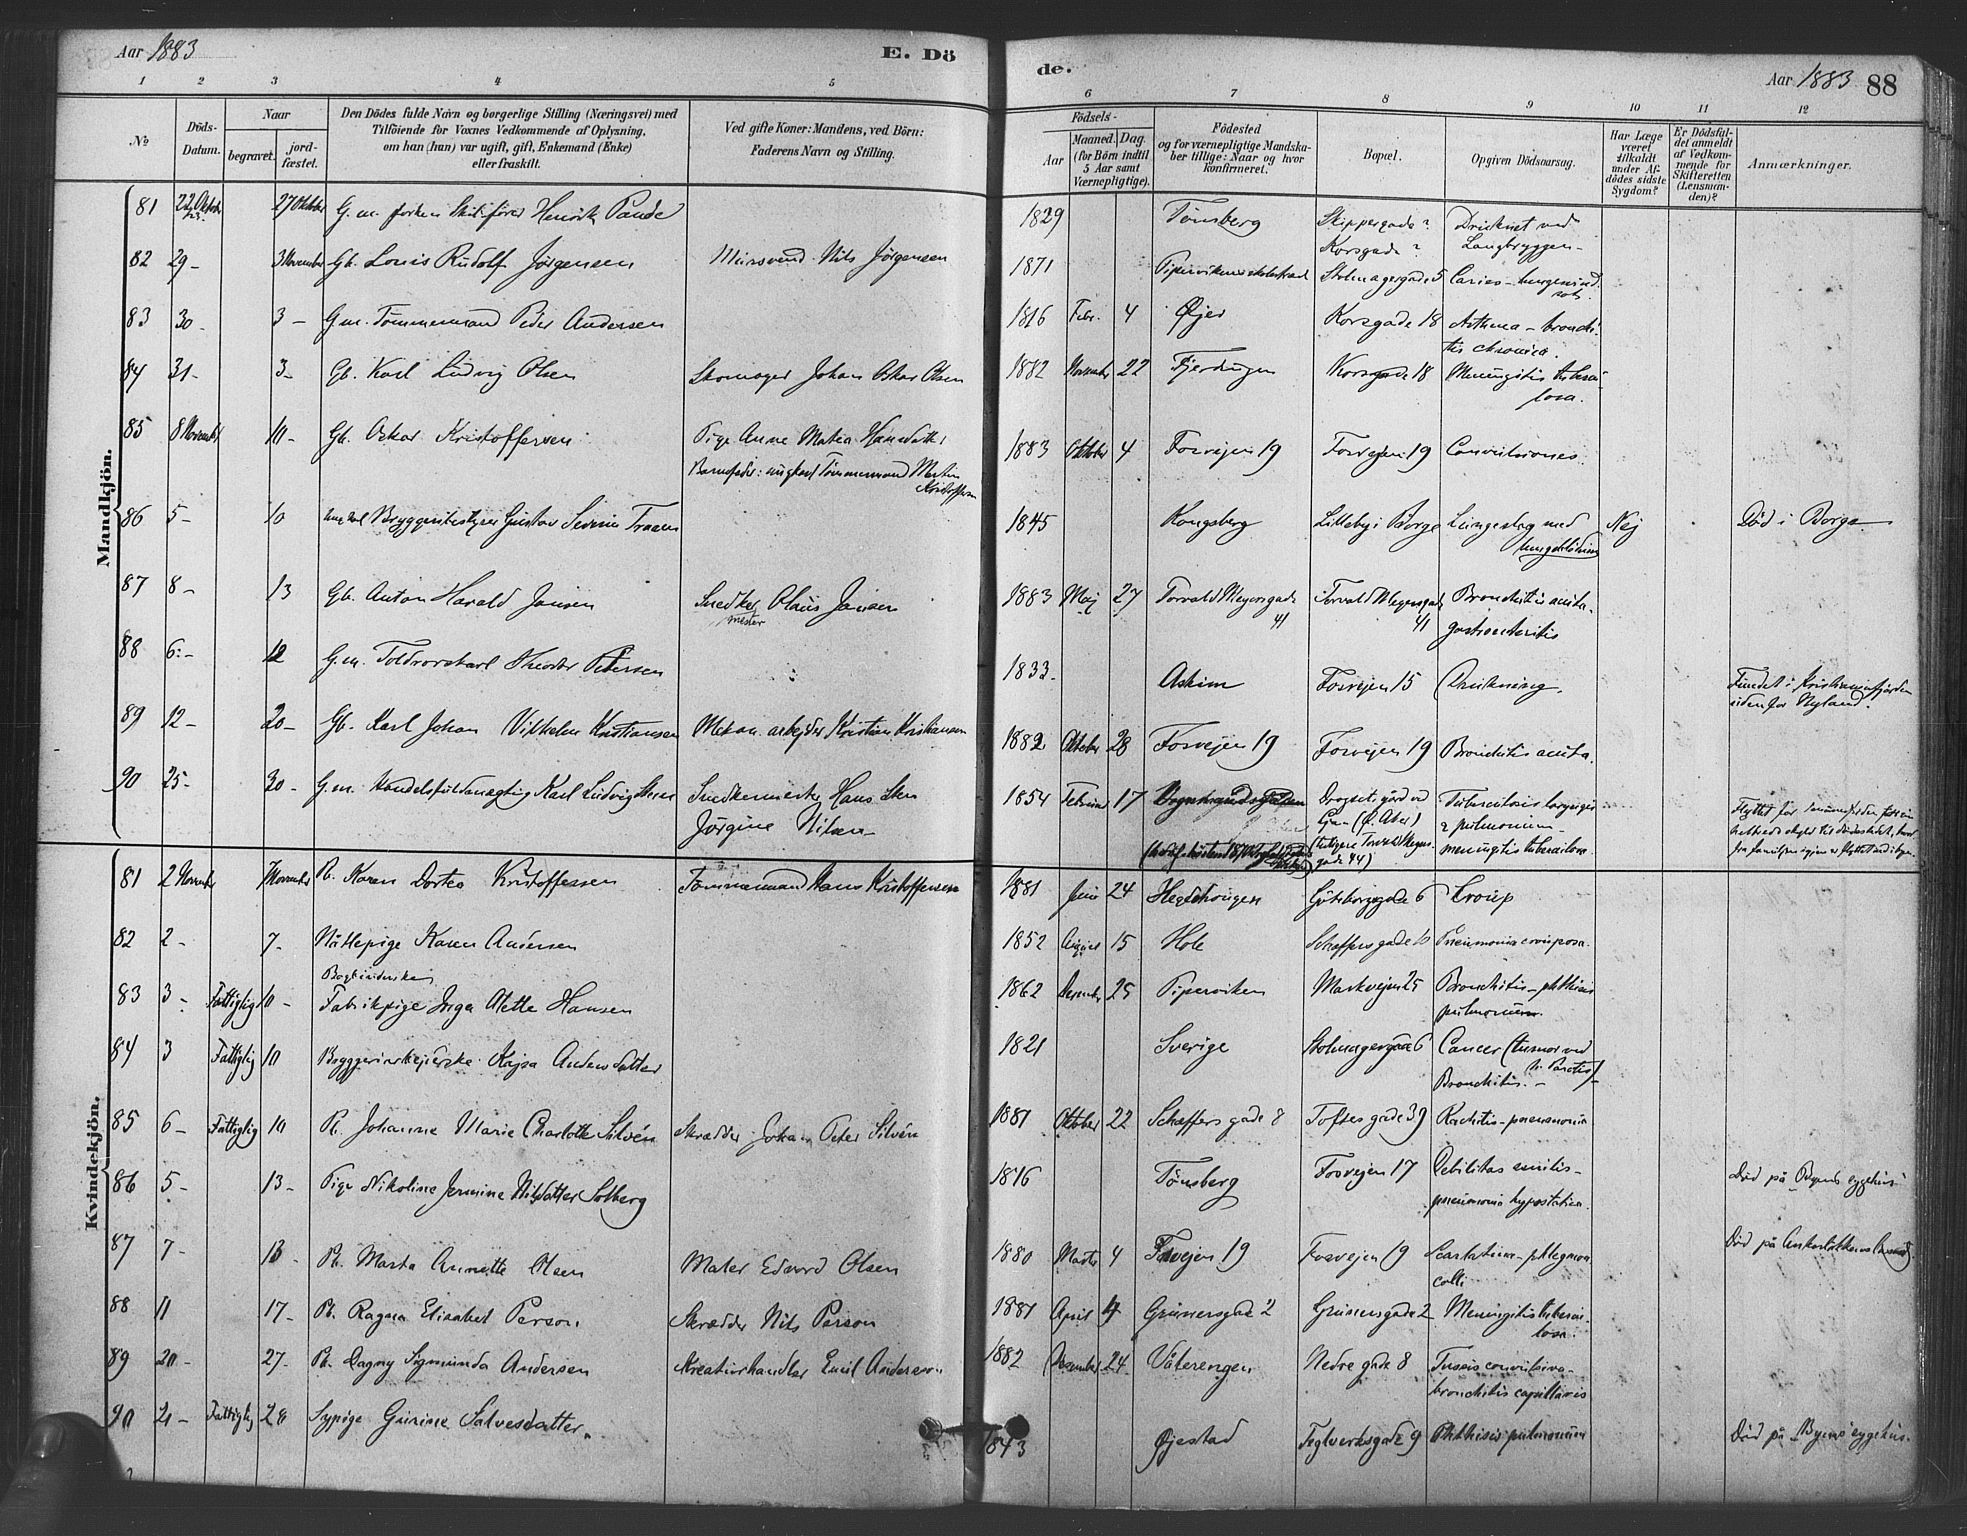 Aar 1883
E. Dö
de.
Aar 1883 88
1 2 3 4 5 6 7 8 9 10 11 12
No
Döds-
Datum.
Naar
begravet.
jord-
fæstet.
Den Dödes fulde Navn og borgerlige Stilling (Næringsvei) med
Tilföiende for Voxnes Vedkommende af Oplysning,
om han (hun) var ugift, gift, Enkemand (Enke)
eller fraskilt.
Ved gifte Koner: Mandens, ved Börn:
Faderens Navn og Stilling.
Födsels-
Aar
Maaned. Dag.
(for Börn indtil
5 Aar samt
Værnepligtige).
Födested
og for værnepligtige Mandska-
ber tillige: Naar og hvor
konfirmeret.
Bopæl.
Opgiven Dödsaarsag.
Har Læge
været
tilkaldt
under Af-
dödes sidste
Sygdom?
Er Dödsfal-
det anmeldt
af Vedkom-
mende for
Skifteretten
(Lensman-
den)?
Anmærkninger.
Mandkjön.
81 22 Oktob. 27 Oktober G.m. Henrik 1829 Tönsberg Skippergade? Druknet ved
Korsgade? Langbryggen
82 29 - 3 November Gb. Louis Rudolf Jörgensen Mursvend Nils Jörgensen 1871 Stolmagergade 5 Caries -
83 30 - 3 - G.m. Tömmermand Peder Andersen 1816 Febr. 4 Øjer Korsgade 18 Asthma - bronchi-
tis chronica.
84 31 - 3 - Gb. Karl Ludvig Olsen Skomager Johan Oskar Olsen 1882 November 22 Fjerdingen Korsgade 18 Meningitis tubercu-
losa.
85 8 November 10 - Gb. Oskar Kristoffersen Pige Anne Matea Hansdatter 1883 Oktober 4 Fosvejen 19 Fosvejen 19 Convulsiones.
Barnefader: ungkarl Tömmermand Martin
Kristoffersen
86 5 - 10 Bryggeribestyrer Gustav Severin Traaen 1845 Kongsberg Lilleby i Borge Lungeslag med Nej Död i Borge
87 8 - 13 Gb. Anton Harald Jansen Snedker Olaus Jansen 1883 Maj 27 Torvald Meyersgade Torvald Meyersgade Bronchitis acuta -
mester 41 41 gastroenteritis
88 6 - 12 G.m. Toldrorskarl Theodor Petersen 1833 Askim Fosvejen 15 Drukning. Fundet i Kristianiafjorden
udenfor Nyland.
89 12 - 20 - Gb. Karl Johan Vilhelm Kristiansen Mekan. arbejder Kristian Kristiansen 1882 Oktober 28 Fosvejen 19 Fosvejen 19 Bronchitis acuta.
90 25 - 30 - G.m. Handelsfuldmægtig Karl Ludvig Snedkermester Hans 1854 Februar 17 Tuberculosis laryngis
Jörgine Nilsen (tidligere Torvald Meyers- & pulmonum -
gade 44) meningitis tuberculosa.
Kvindekjön.
81 2 November 7 November Pb. Karen Dortea Kristoffersen Tömmermand Hans Kristoffersen 1881 Juni 24 Hegdehougen Göteborggade 6 Croup
82 2 - 7 - Karen Andersen 1852 August 15 Hole Schaffersgade 10 Pneumonia crouposa.
Bogbinderske
83 3 - Fattiglig 10 - Fabrikpige Inga Alette Hansen 1862 December 25 Piperviken Markvejen 25 Bronchitis - phthisis
pulmonum.
84 3 Fattiglig 10 Bryggeriarbejderske Kajsa Andersdatter 1821 Sverige Stolmagergade 6 Cancer (tumor ved
Bronchitis. -
85 6 - Fattiglig 10 Pb. Johanne Marie Charlotte Silvén Skrædder Johan Peter Silvén 1881 Oktober 22 Schaffersgade 8 Toftesgade 39 Rachitis - pneumonia
86 5 - 13 - Pige Nikoline Jermine Nilsdatter Solberg 1816 Tönsberg Fosvejen 17 Debilitas senilis - Död på Byens sygehus
pneumonia hypostatica.
87 7 - 13 - Pb. Marta Annette Olsen Maler Edvard Olsen 1880 Marts 4 Fosvejen 19 Fosvejen 19 Scarlatina - phlegmon Död på
colli
88 11 17 - Pb. Ragna Elisabet Person Skrædder Nils Person 1881 April 4 Grünersgade 2 Grünersgade 2 Meningitis tubercu-
losa.
89 20 - 27 - Pb. Dagny Sigmunda Andersen Kreaturhandler Emil Andersen 1882 December 24 Vålerengen Nedregade 8 Tussis convulsiva -
bronchitis capillaris
90 21 - Fattiglig 28 Sypige Gurine Salvesdatter. 1843 Øjestad Teglverksgade 9 Phthisis pulmonum Död på Byens sygehus.